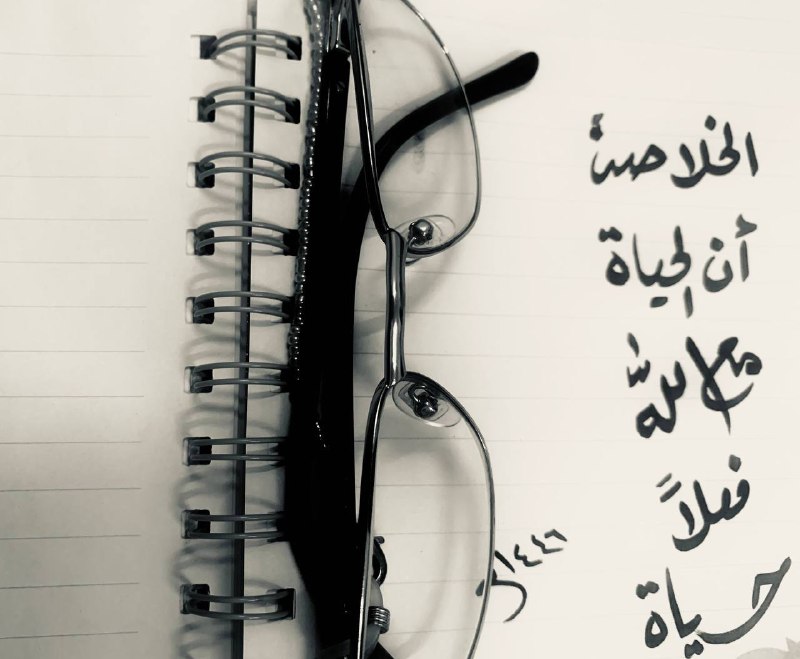 الخلاصة
أن الحياة
مع الله
فعلاً
حياة
١٤٤٦هـ